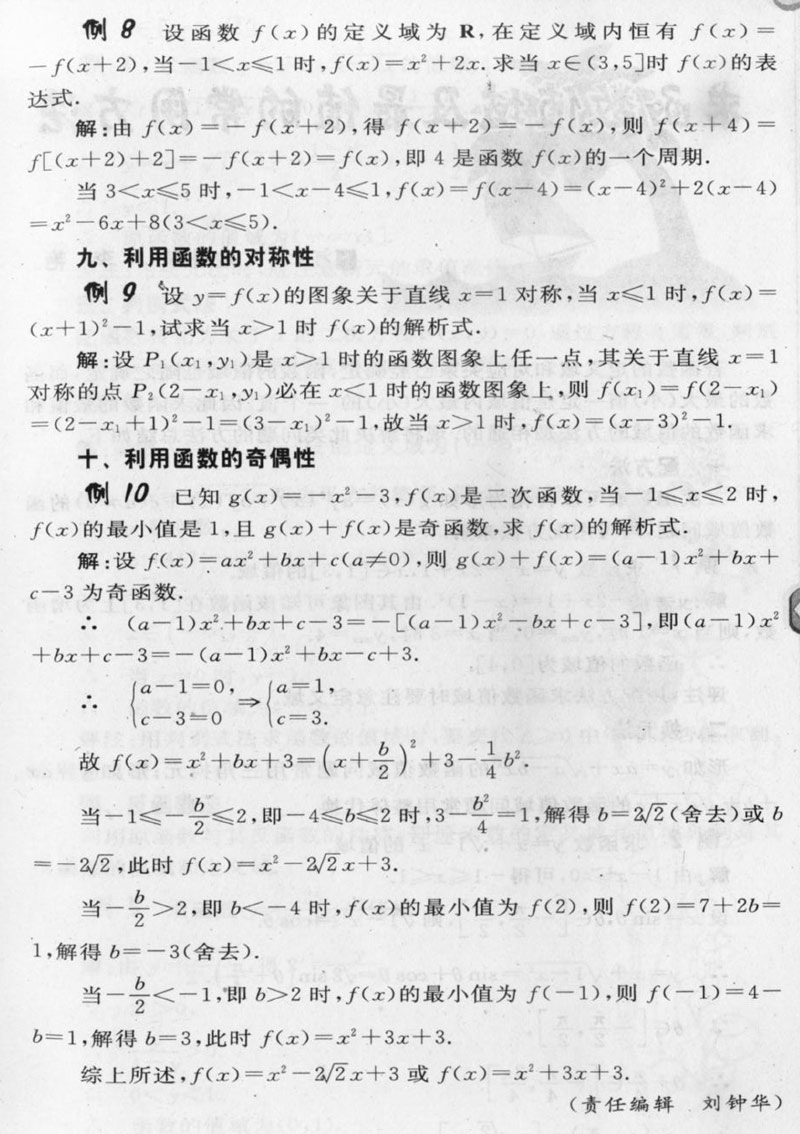 例8 设函数 f(x)的定义域为 R,在定义域内恒有 f(x)=
-f(x+2),当-1<x≤1时,f(x)=x²+2x.求当 x∈(3,5]时 f(x)的表
达式.
解:由 f(x)=-f(x+2),得 f(x+2)=-f(x),则 f(x+4)=
f[(x+2)+2]=-f(x+2)=f(x),即 4 是函数 f(x)的一个周期.
当 3<x≤5 时,-1<x-4≤1,f(x)=f(x-4)=(x-4)²+2(x-4)
=x²-6x+8(3<x≤5).
九、利用函数的对称性
例9 设 y=f(x)的图象关于直线 x=1 对称,当 x≤1 时,f(x)=
(x+1)²-1,试求当 x>1 时 f(x)的解析式.
解:设 P₁(x₁,y₁)是 x>1 时的函数图象上任一点,其关于直线 x=1
对称的点 P₂(2-x₁,y₁)必在 x<1 时的函数图象上,则 f(x₁)=f(2-x₁)
=(2-x₁+1)²-1=(3-x₁)²-1,故当 x>1 时,f(x)=(x-3)²-1.
十、利用函数的奇偶性
例10 已知 g(x)=-x²-3,f(x)是二次函数,当-1≤x≤2 时,
f(x)的最小值是 1,且 g(x)+f(x)是奇函数,求 f(x)的解析式.
解:设 f(x)=ax²+bx+c(a≠0),则 g(x)+f(x)=(a-1)x²+bx+
c-3 为奇函数.
∴ (a-1)x²+bx+c-3=-[(a-1)x²-bx+c-3],即(a-1)x²
+bx+c-3=-(a-1)x²+bx-c+3.
∴ {a-1=0, c-3=0 ⇒ {a=1, c=3.
故 f(x)=x²+bx+3=(x+b/2)²+3-1/4b².
当-1≤-b/2≤2,即-4≤b≤2 时,3-b²/4=1,解得 b=2√2(舍去)或 b
=-2√2,此时 f(x)=x²-2√2x+3.
当-b/2>2,即 b<-4 时,f(x)的最小值为 f(2),则 f(2)=7+2b=
1,解得 b=-3(舍去).
当-b/2<-1,即 b>2 时,f(x)的最小值为 f(-1),则 f(-1)=4-
b=1,解得 b=3,此时 f(x)=x²+3x+3.
综上所述,f(x)=x²-2√2x+3 或 f(x)=x²+3x+3.
(责任编辑 刘钟华)